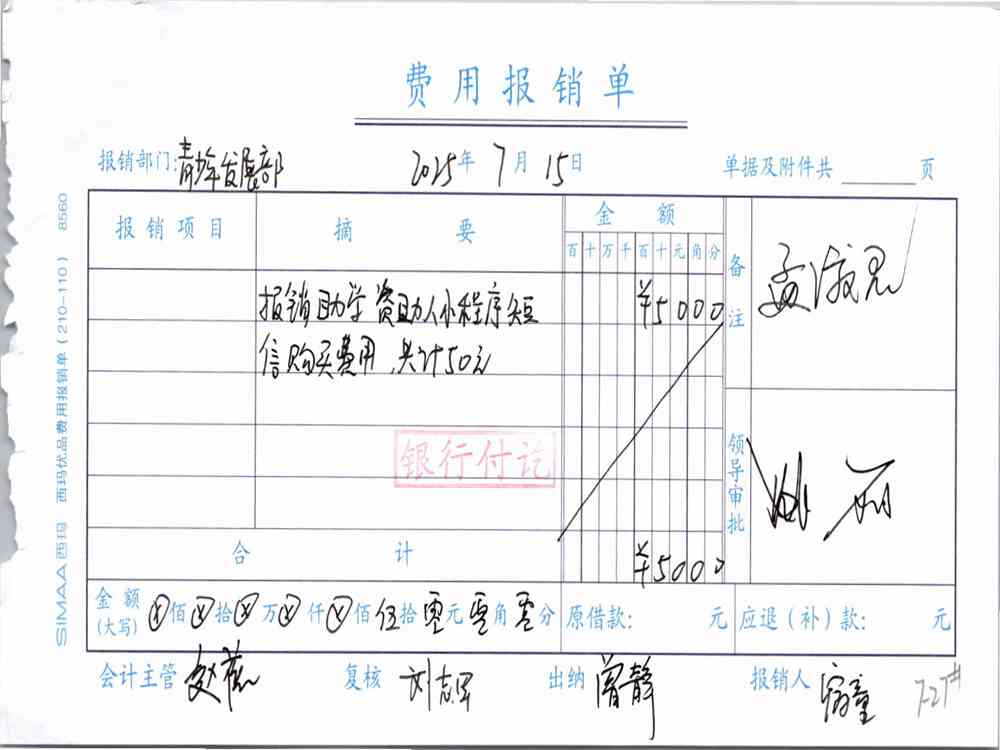 费用报销单
报销部门:青少年发展部 2025年 7月 15日 单据及附件共 页
报销项目 摘要 金额 备注
百十万千百十元角分
报销助学资助人小程序短 ¥5000
信购买费用,共计50元
银行付讫
领导审批
合计 ¥5000
金额(大写) ⊗佰⊗拾⊗万⊗仟⊗佰伍拾零元零角零分 原借款: 元 应退(补)款: 元
会计主管 复核 刘志军 出纳 曾静 报销人 7-27#
SIMAA西玛 西玛优品费用报销单(210-110) 8560